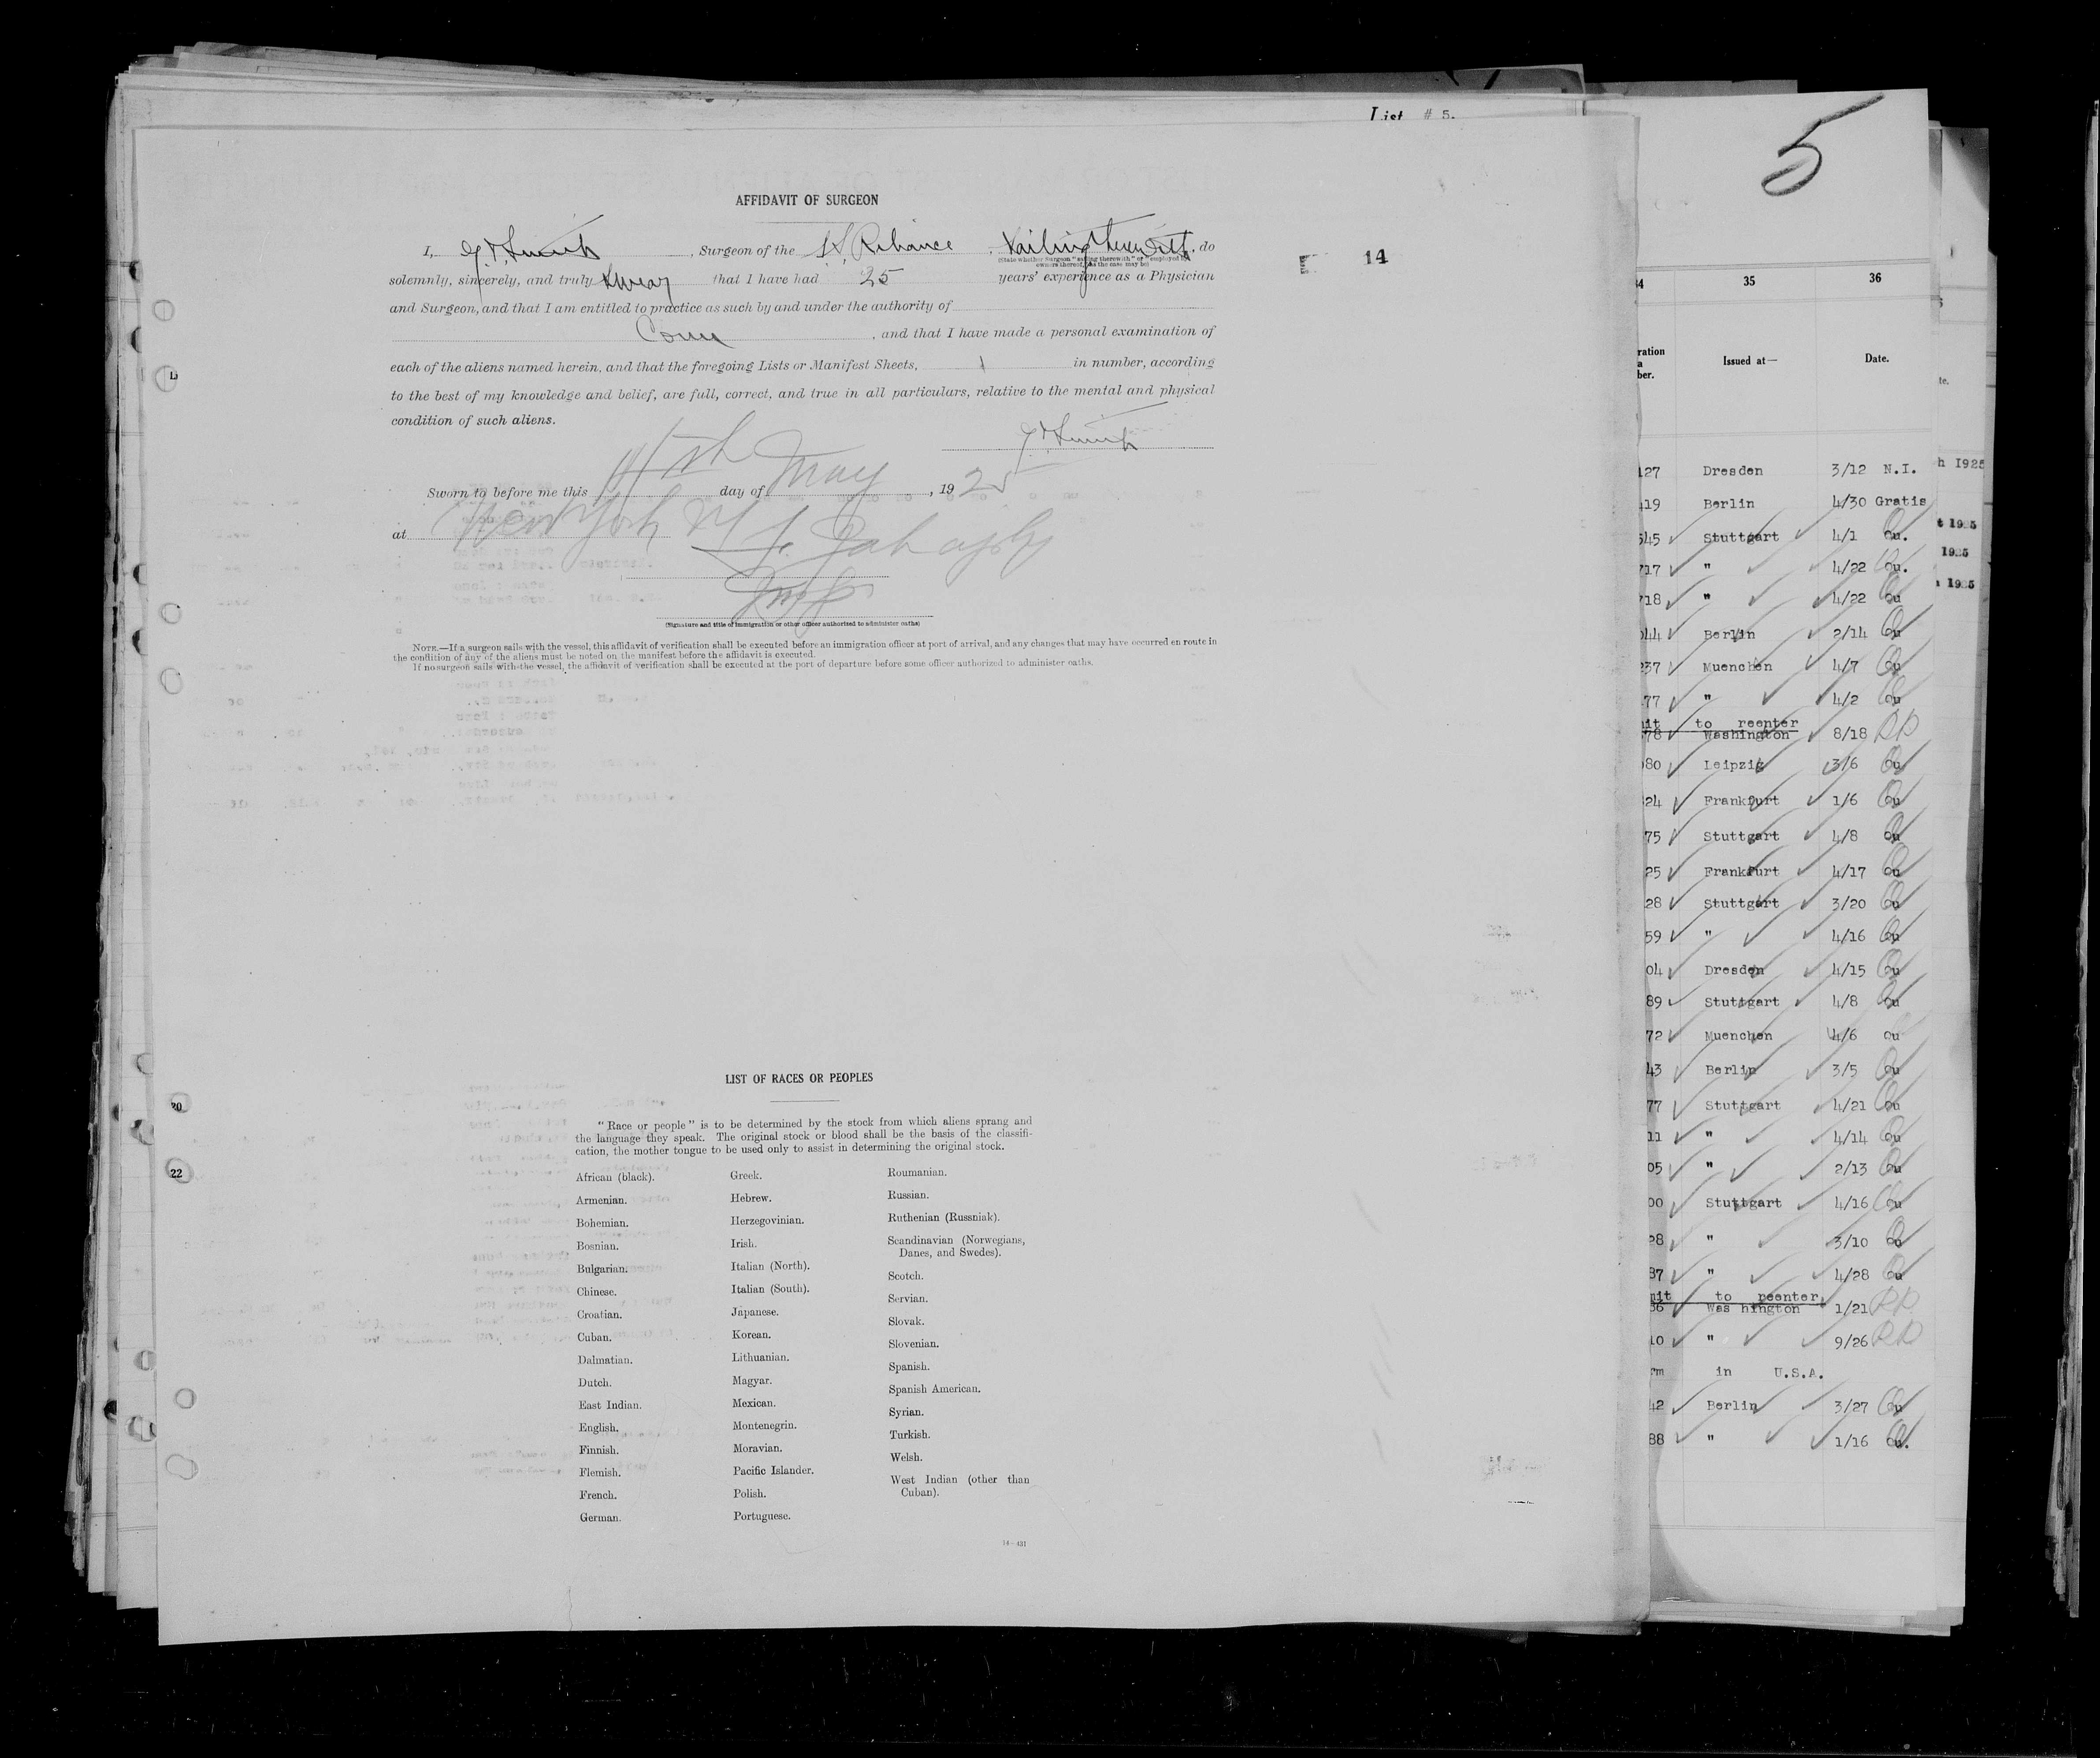 List # 5.
5
AFFIDAVIT OF SURGEON
I, Smith, Surgeon of the S.S. Reliance, Sailing therewith, do
(State whether Surgeon "sailing therewith" or "employed by owners thereof," as the case may be)
solemnly, sincerely, and truly swear that I have had 25 years' experience as a Physician
and Surgeon, and that I am entitled to practice as such by and under the authority of
Conn, and that I have made a personal examination of
each of the aliens named herein, and that the foregoing Lists or Manifest Sheets, 1 in number, according
to the best of my knowledge and belief, are full, correct, and true in all particulars, relative to the mental and physical
condition of such aliens.
Smith
Sworn to before me this day of May, 1925
at New York NY
Insp
(Signature and title of immigration or other officer authorized to administer oaths)
NOTE.—If a surgeon sails with the vessel, this affidavit of verification shall be executed before an immigration officer at port of arrival, and any changes that may have occurred en route in
the condition of any of the aliens must be noted on the manifest before the affidavit is executed.
If no surgeon sails with the vessel, the affidavit of verification shall be executed at the port of departure before some officer authorized to administer oaths.
14
20
22
LIST OF RACES OR PEOPLES
"Race or people" is to be determined by the stock from which aliens sprang and
the language they speak. The original stock or blood shall be the basis of the classifi-
cation, the mother tongue to be used only to assist in determining the original stock.
African (black).
Armenian.
Bohemian.
Bosnian.
Bulgarian.
Chinese.
Croatian.
Cuban.
Dalmatian.
Dutch.
East Indian.
English.
Finnish.
Flemish.
French.
German.
Greek.
Hebrew.
Herzegovinian.
Irish.
Italian (North).
Italian (South).
Japanese.
Korean.
Lithuanian.
Magyar.
Mexican.
Montenegrin.
Moravian.
Pacific Islander.
Polish.
Portuguese.
Roumanian.
Russian.
Ruthenian (Russniak).
Scandinavian (Norwegians,
Danes, and Swedes).
Scotch.
Servian.
Slovak.
Slovenian.
Spanish.
Spanish American.
Syrian.
Turkish.
Welsh.
West Indian (other than
Cuban).
14—431
34 35 36
ration Issued at— Date.
a
ber.
127 Dresden 3/12 N.I.
419 Berlin 4/30 Gratis
545 Stuttgart 4/1 Qu.
717 " 4/22 Qu.
718 " 4/22 Qu
044 Berlin 2/14 Qu
237 Muenchen 4/7 Qu
77 " 4/2 Qu
mit to reenter
78 Washington 8/18 RP
080 Leipzig 3/6 Qu
24 Frankfurt 1/6 Qu
75 Stuttgart 4/8 Qu
25 Frankfurt 4/17 Qu
28 Stuttgart 3/20 Qu
59 " 4/16 Qu
04 Dresden 4/15 Qu
89 Stuttgart 4/8 Qu
72 Muenchen 4/6 Qu
43 Berlin 3/5 Qu
77 Stuttgart 4/21 Qu
11 " 4/14 Qu
05 " 2/13 Qu
00 Stuttgart 4/16 Qu
28 " 3/10 Qu
87 " 4/28 Qu
mit to reenter
86 Washington 1/21 RP
10 " 9/26 RP
rm in U.S.A.
42 Berlin 3/27 Qu
88 " 1/16 Qu.
te.
h 1925
t 1925
1925
1925